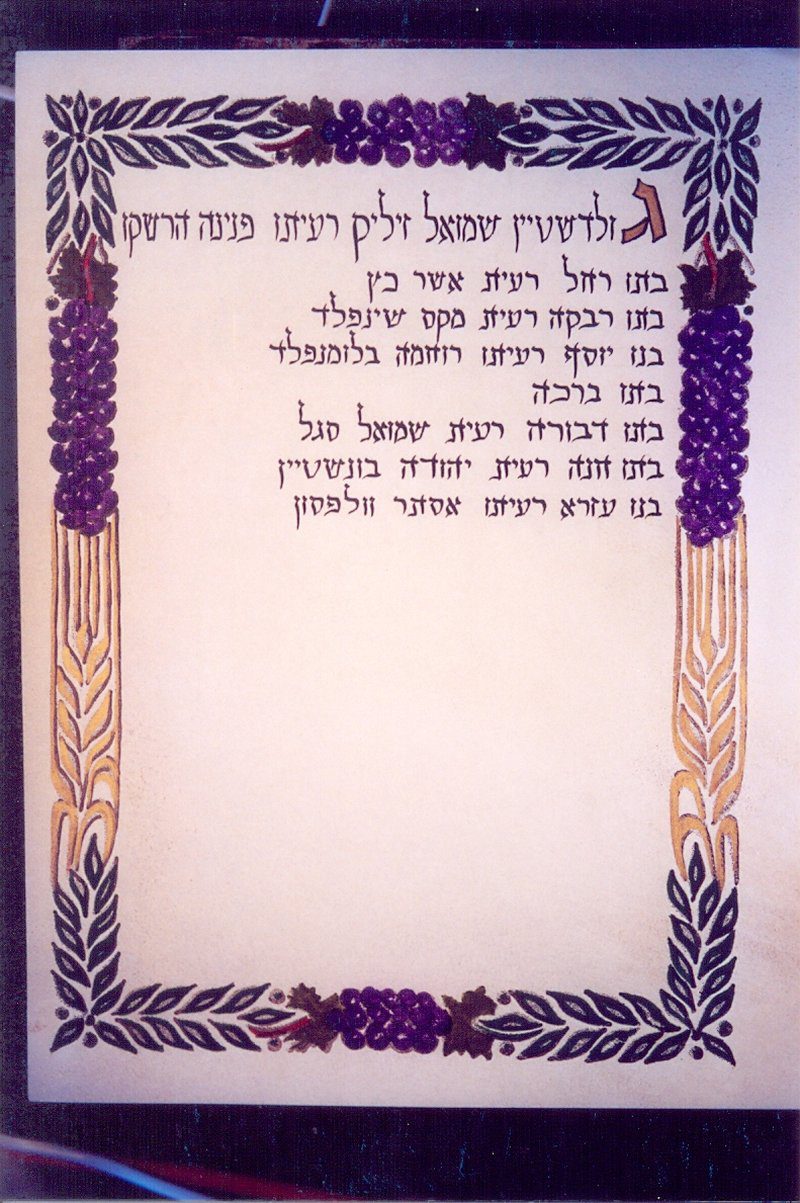 גולדשטיין שמואל זיליק רעיתו פנינה הרשקו
בתו רחל רעית אשר כץ
בתו רבקה רעית מקס שינפלד
בנו יוסף רעיתו רוחמה בלומנפלד
בתו ברכה
בתו דבורה רעית שמואל סגל
בתו חנה רעית יהודה בונשטיין
בנו עזרא רעיתו אסתר וולפסון